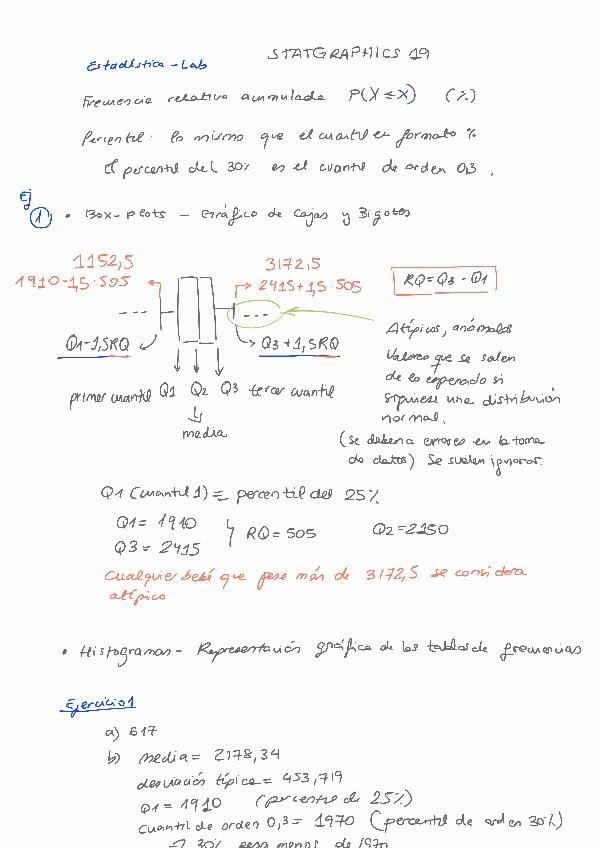 STATGRAPHICS 19
Estadística - Lab
Frecuencia relativa acumulada P(X ≤ x) (%)
Percentil: lo mismo que el cuantil en formato %
El percentil del 30% es el cuantil de orden 0,3.
Ej
1 • Box-Plots - Gráfico de Cajas y Bigotes
1152,5
1910-1,5·505
3172,5
2415+1,5·505
RQ = Q3 - Q1
Q1-1,5RQ
Q3+1,5RQ
Atípicos, anómalos
Valores que se salen
de lo esperado si
siguiese una distribución
normal.
(se deben a errores en la toma
de datos) Se suelen ignorar.
primer cuantil Q1 Q2 Q3 tercer cuantil
media
Q1 (cuantil 1) = percentil del 25%
Q1 = 1910
Q3 = 2415
RQ = 505
Q2 = 2150
Cualquier bebé que pese más de 3172,5 se considera
atípico
• Histogramas - Representación gráfica de las tablas de frecuencias
Ejercicio 1
a) 617
b) media = 2178,34
desviación típica = 453,719
Q1 = 1910 (percentil de 25%)
Cuantil de orden 0,3 = 1970 (percentil de orden 30%)
→ 30% pesa menos de 1970